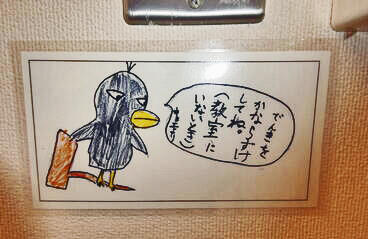 でんきを
かならずけ
してね。
(教室に
いないとき)